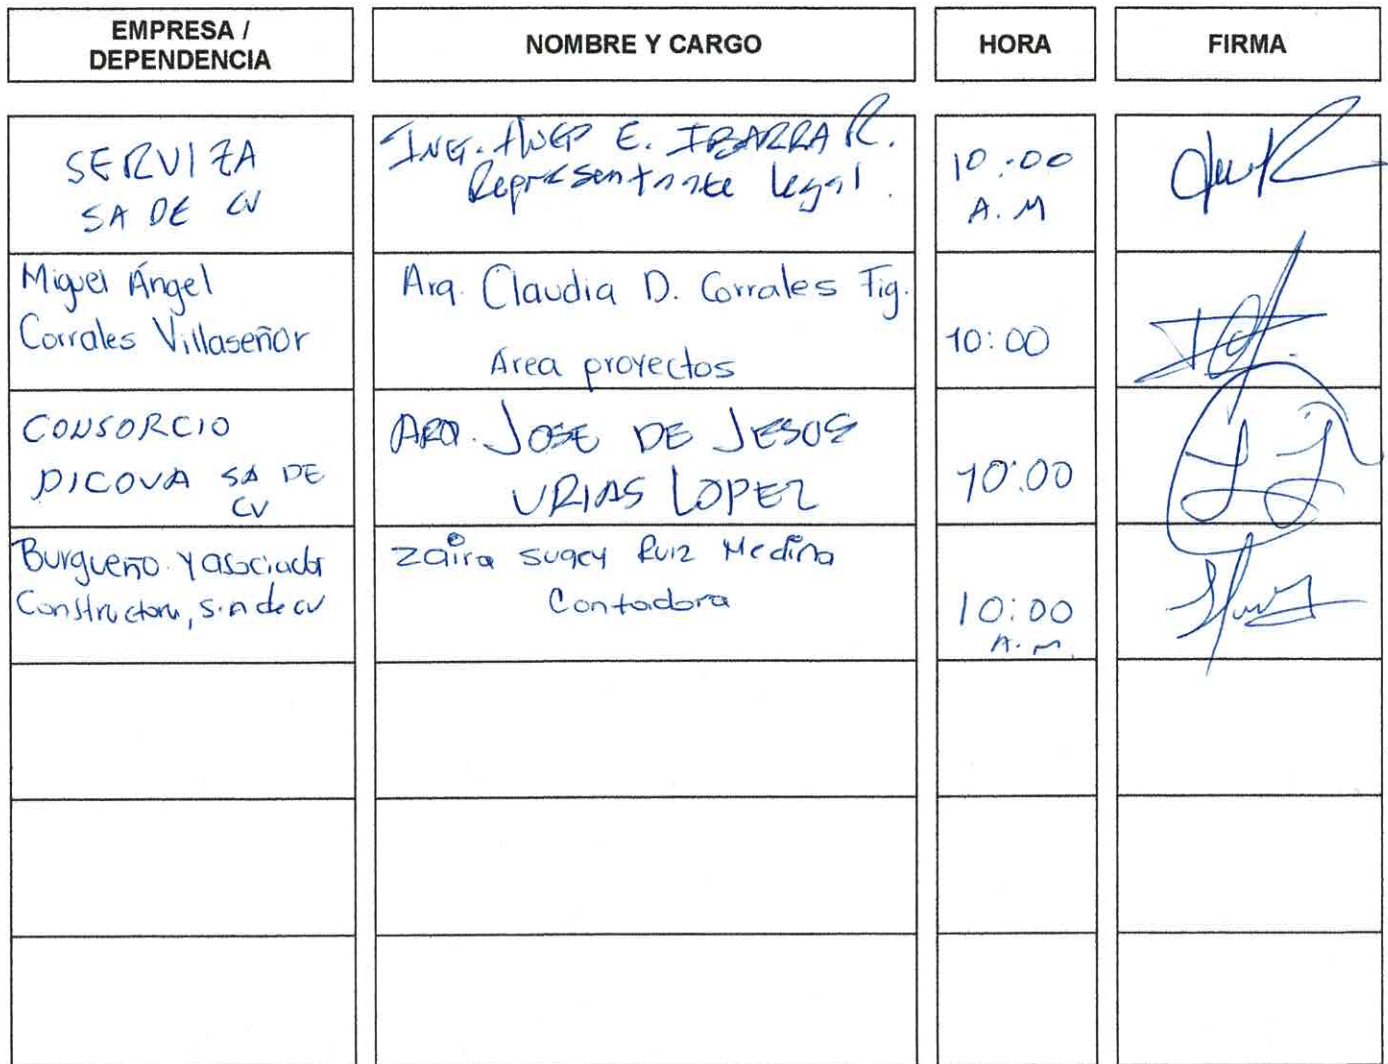 EMPRESA /
DEPENDENCIA
NOMBRE Y CARGO
HORA
FIRMA
SERVIZA
SA DE CV
ING. E. IBARRA R.
Representante legal.
10:00
A.M
Miguel Ángel
Corrales Villaseñor
Arq. Claudia D. Corrales Fig.
Área proyectos
10:00
CONSORCIO
DICOVA SA DE
CV
ARQ. JOSE DE JESUS
URIAS LOPEZ
10:00
Burgueño y asociados
Constructora, S.A de CV
Zaira Sugey Ruiz Medina
Contadora
10:00
A.M.